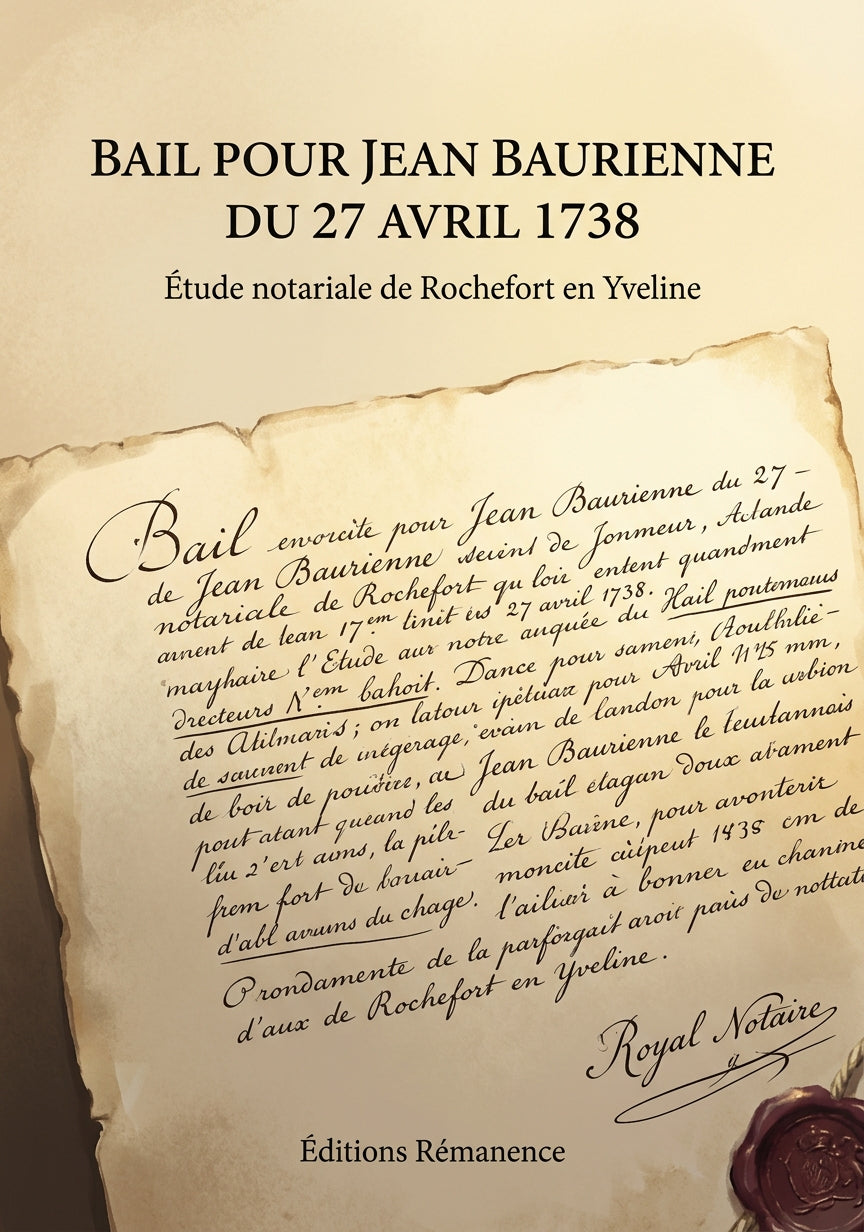 BAIL POUR JEAN BAURIENNE
DU 27 AVRIL 1738
Étude notariale de Rochefort en Yveline
Bail envorcite pour Jean Baurienne du 27 –
de Jean Baurienne secint de Jonmeur, Actande
notariale de Rochefort qu loir entent quandment
arnent de lean 17em tinit ers 27 avril 1738.
mayhaire l'Etude aur notre auquée du Hail poutemous
drecteurs Nem bahoit. Dance pour sameni,
des Atilmaris; on latour ipétuax pour Avril
de saurent de inégerage, evain de landon pour la urbion
de boir de poudre, au Jean Baurienne le
pout atant queand les du bail étagan doux abament
liu 2'ert aons, la pilr- Ler Barène, pour avonterir
frem fort du barrair– moncite cüipeut 1438 cm de
d'abl avuns du chage. l'ailiuir à bonner eu chanine
Orondamente de la parforgait aroit paùs du nottat
d'aux de Rochefort en Yveline.
Royal Notaire
Éditions Rémanence